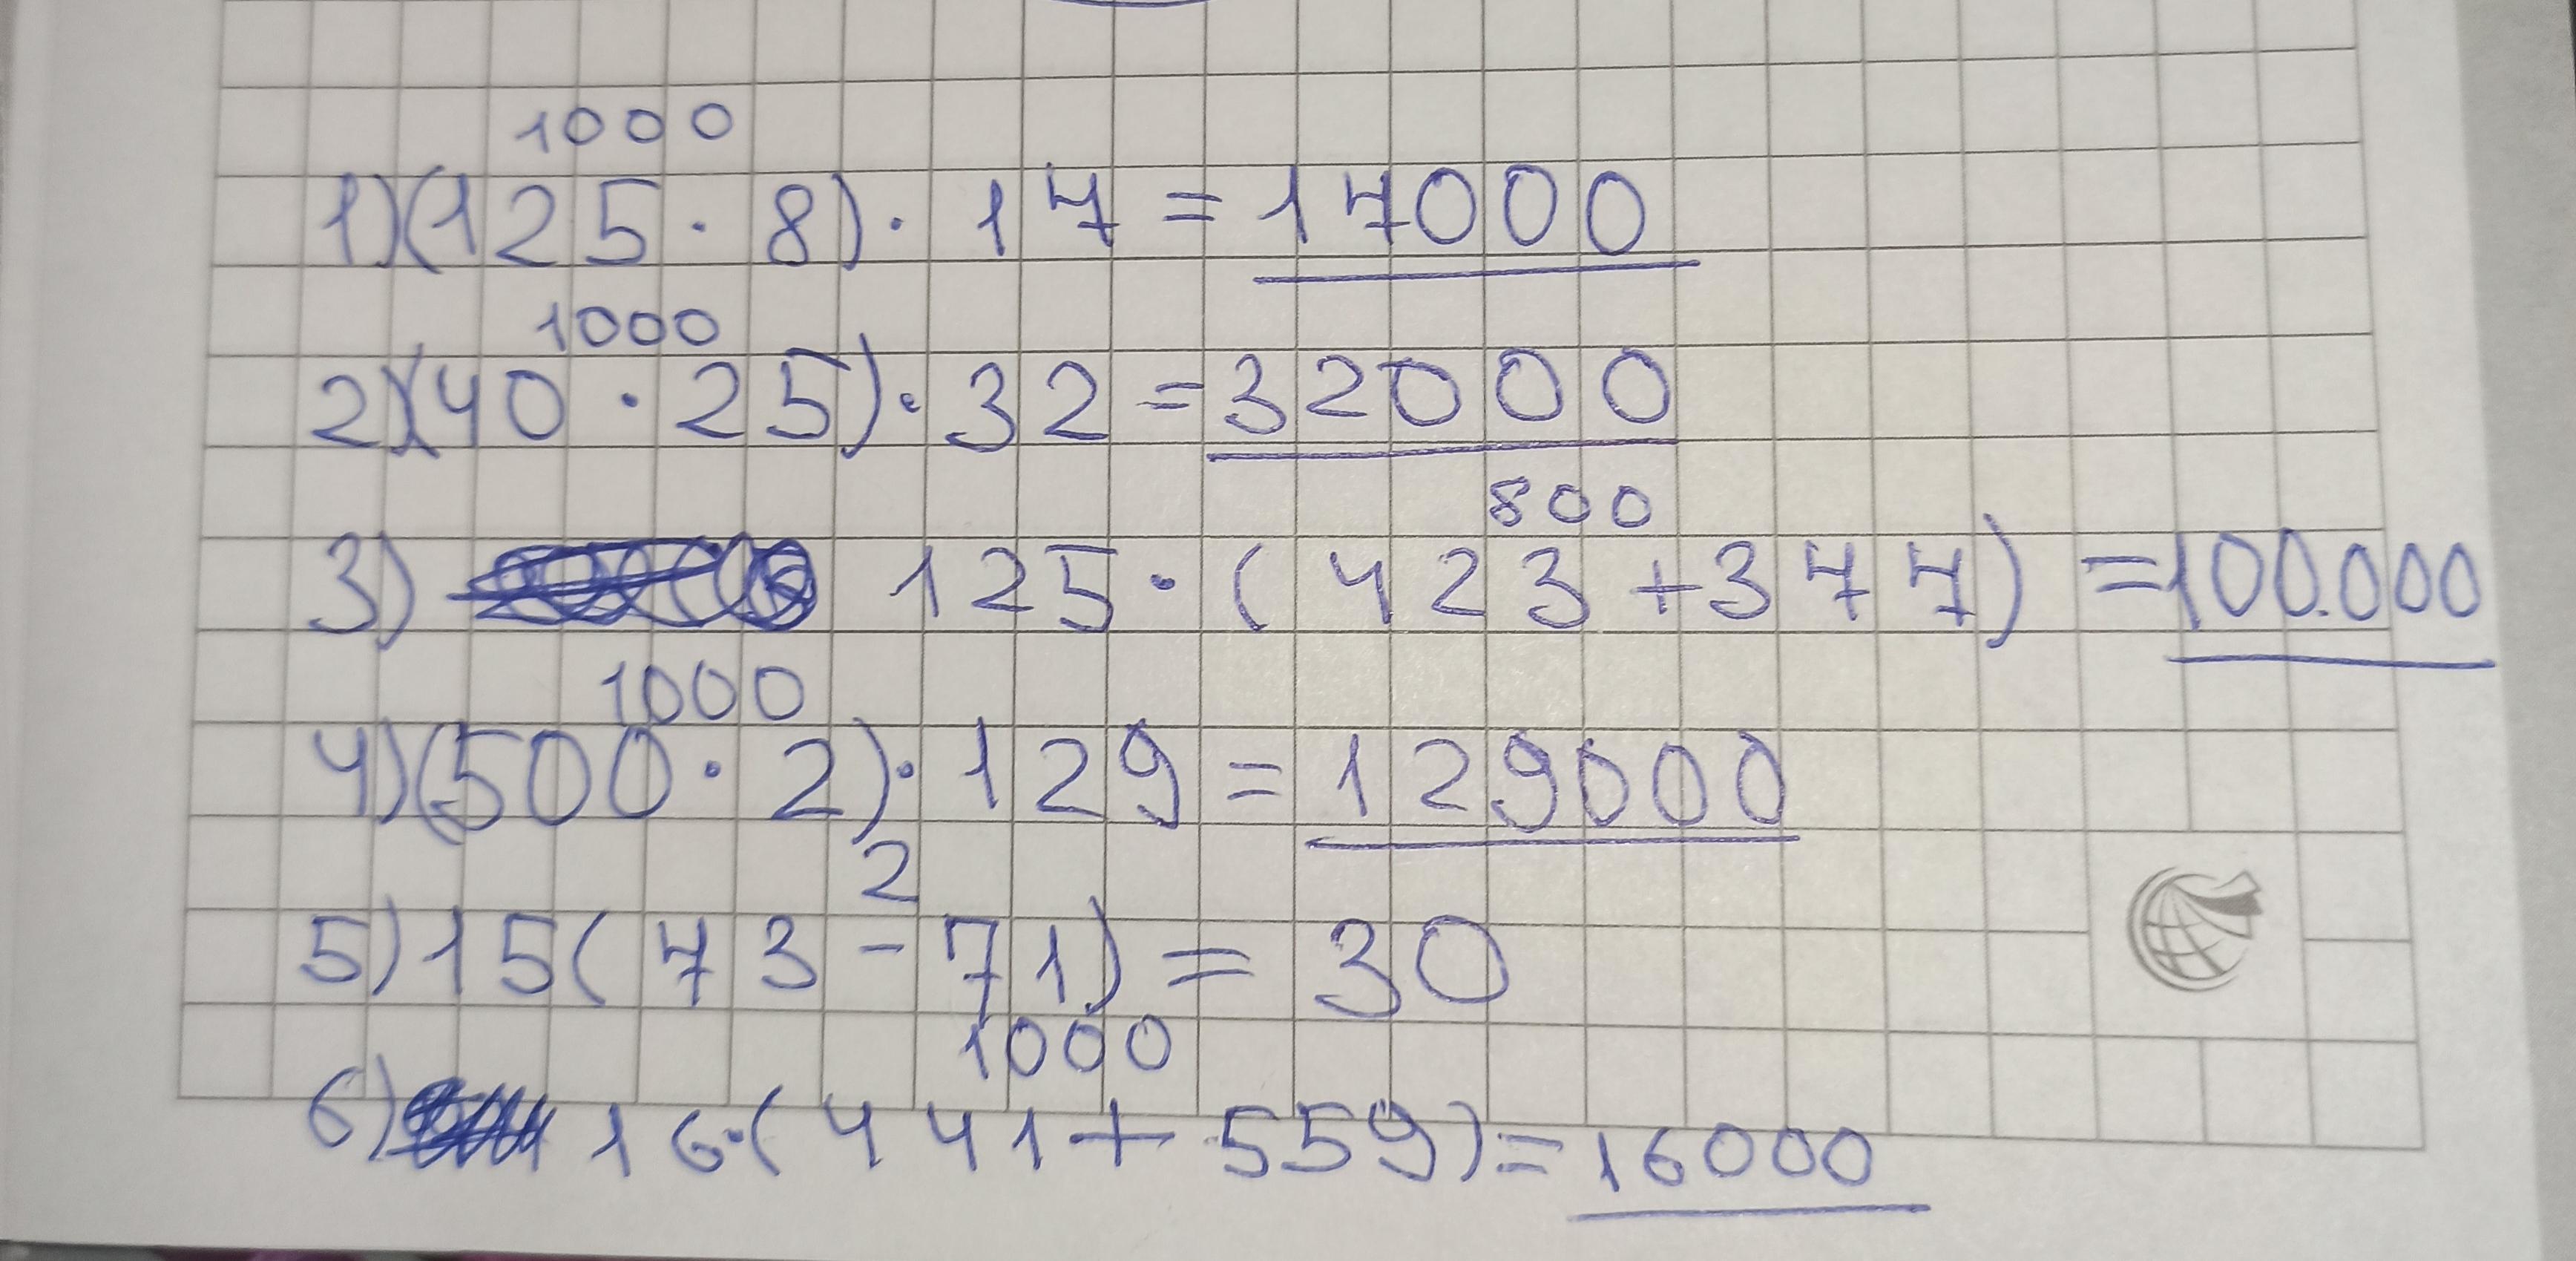 1000
1)(125 · 8) · 17 = 17000
1000
2)(40 · 25) · 32 = 32000
800
3) 125 · (423 + 377) = 100.000
1000
4)(500 · 2) · 129 = 129000
2
5) 15(73 - 71) = 30
1000
6) 16·(441 + 559) = 16000